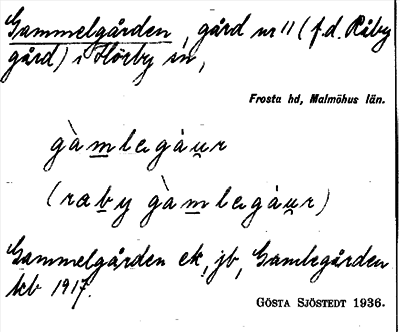 Gammelgården, gård nr 11 (f.d. Råby
gård) i Hörby sn,
Frosta hd, Malmöhus län.
gàmlegáur
(raby gàmlegáur)
Gammelgården ek, jb, Gamlegården
kb 1917.
GÖSTA SJÖSTEDT 1936.